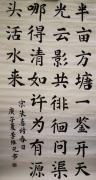 半亩方塘一鉴开天
光云影共徘徊问渠
哪得清如许为有源
头活水来
宋朱熹诗春日
庚子夏